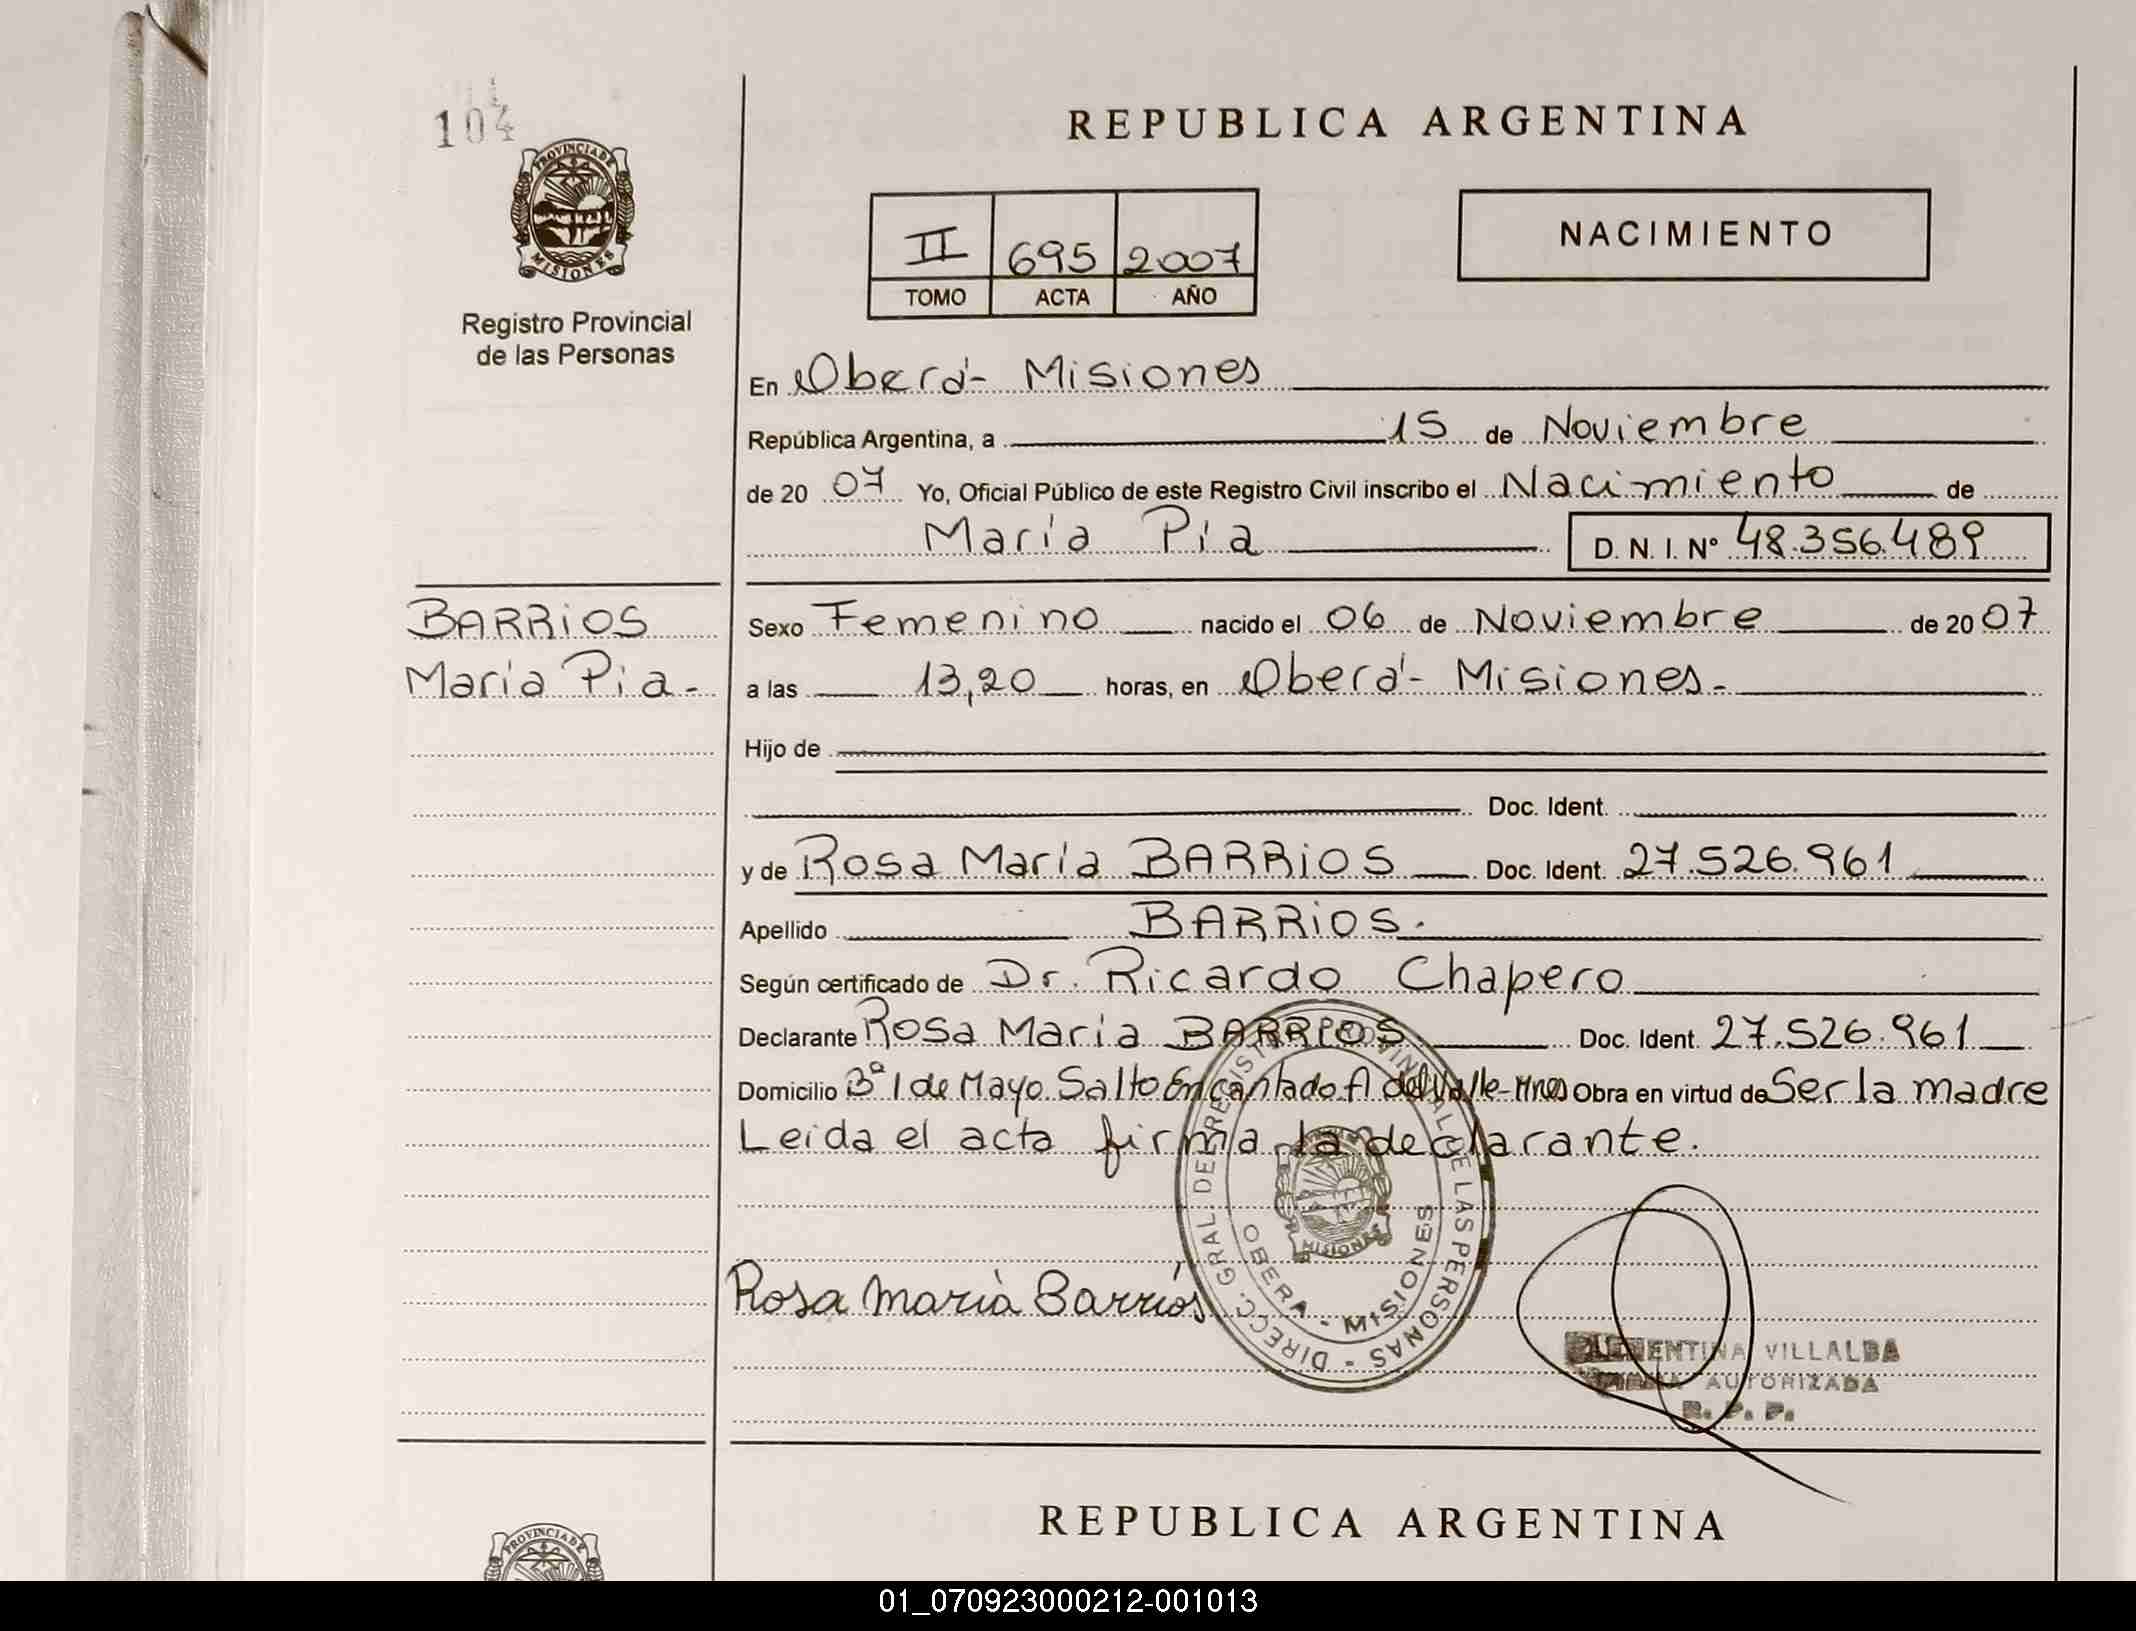 104
PROVINCIA DE
MISIONES
Registro Provincial
de las Personas
REPUBLICA ARGENTINA
II 695 2007
TOMO ACTA AÑO
NACIMIENTO
En Oberá - Misiones
República Argentina, a 15 de Noviembre
de 20 07 Yo, Oficial Público de este Registro Civil inscribo el Nacimiento de
María Pía D. N. I. Nº 48.356.489
BARRIOS
María Pia -
Sexo Femenino nacido el 06 de Noviembre de 20 07
a las 13,20 horas, en Oberá - Misiones -
Hijo de
Doc. Ident.
y de Rosa María BARRIOS Doc. Ident. 27.526.961
Apellido BARRIOS.
Según certificado de Dr. Ricardo Chapero
Declarante Rosa Maria BARRIOS Doc. Ident. 27.526.961
Domicilio Bº 1 de Mayo. Salto Encantado A del Valle - Mnes Obra en virtud de Ser la madre
Leida el acta firma la declarante.
DIRECC. GRAL. DEL REGISTRO PROVINCIAL DE LAS PERSONAS -
MISIONES
OBERA - MISIONES
Rosa Maria Barrios
VILLALBA
AUTORIZADA
R. P. P.
REPUBLICA ARGENTINA
PROVINCIA DE
01_070923000212-001013